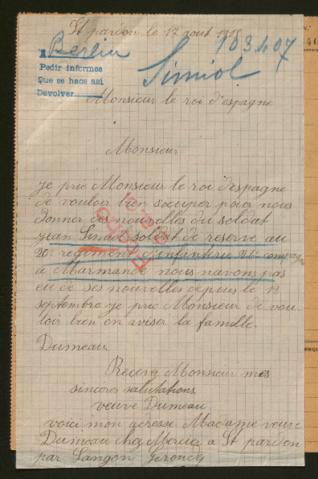 St pardon le 17 aout 1915
Berlin
103407
Pedir informes
Que se hace así
Devolver
Simiol
Monsieur le roi d'espagne
Monsieur
je prie Monsieur le roi d'espagne
de vouloir bien socuper pour nous
donner des nouvelles du soldat
jean soldat de reserve au
20e regiment d'infanterie
a Marmande nous navons pas
eu de ses nouvelles depuis le
septembre je prie Monsieur de vou
loir bien en aviser la famille
Dumeau
Recevez Monsieur mes
sinceres salutations
veuve Dumeau
voici mon adresse Madame veuve
Dumeau chez Mercier a St pardon
par Langon Gironde